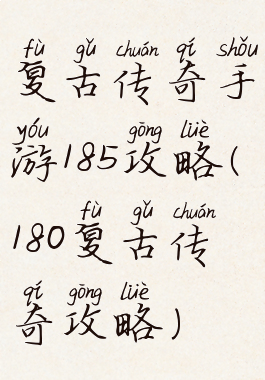 fù gǔ chuán qí shǒu
复古传奇手
yóu gōng lüè
游185攻略(
fù gǔ chuán
180复古传
qí gōng lüè
奇攻略)